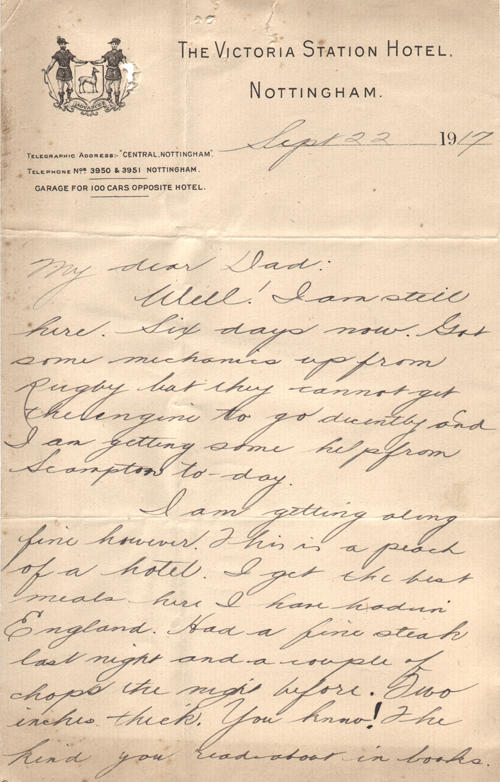 ADVANCE
THE VICTORIA STATION HOTEL.
NOTTINGHAM.
Sept 22 1917
TELEGRAPHIC ADDRESS:- "CENTRAL, NOTTINGHAM".
TELEPHONE Nos 3950 & 3951 NOTTINGHAM.
GARAGE FOR 100 CARS OPPOSITE HOTEL.
My dear Dad:
Well! I am still
here. Six days now. Got
some mechanics up from
Rugby but they cannot get
the engine to go decently and
I am getting some help from
Scampton to-day.
I am getting along
fine however. This is a peach
of a hotel. I get the best
meals here I have had in
England. Had a fine steak
last night and a couple of
chops the night before. Two
inches thick. You know! The
kind you read about in books.